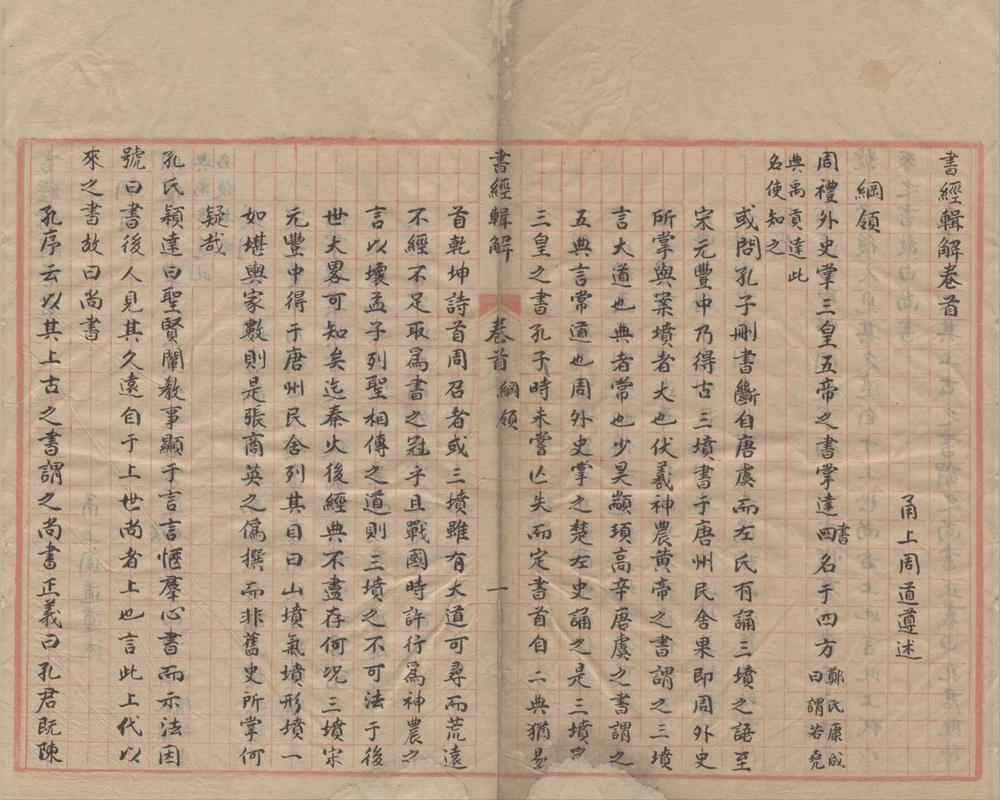 書經輯解卷首
甬上周道遵述
綱領
周禮外史掌三皇五帝之書掌達書名于四方鄭氏康成曰謂若堯
典禹貢達此名使知之
或問孔子刪書斷自唐虞而左氏有誦三墳之語至
宋元豐中乃得古三墳書于唐州民舍果即周外史
所掌與案墳者大也伏羲神農黃帝之書謂之三墳
言大道也典者常也少昊顓頊高辛唐虞之書謂之
五典言常道也周外史掌之楚左史誦之是三墳即
三皇之書孔子時未嘗亾失而定書首自二典猶易
書經輯解 卷首 綱領 一
首乾坤詩首周召者或三墳雖有大道可尋而荒遠
不經不足取爲書之冠乎且戰國時許行爲神農之
言以壞孟子列聖相傳之道則三墳之不可法于後
世大畧可知矣迄秦火後經典不盡存何况三墳宋
元豐中得于唐州民舍列其目曰山墳氣墳形墳一
如堪輿家數則是張商英之僞撰而非舊史所掌何
疑哉
孔氏穎達曰聖賢闡教事顯于言言愜羣心書而示法因
號曰書後人見其久遠自于上世尚者上也言此上代以
來之書故曰尚書
孔序云以其上古之書謂之尚書正義曰孔君既陳